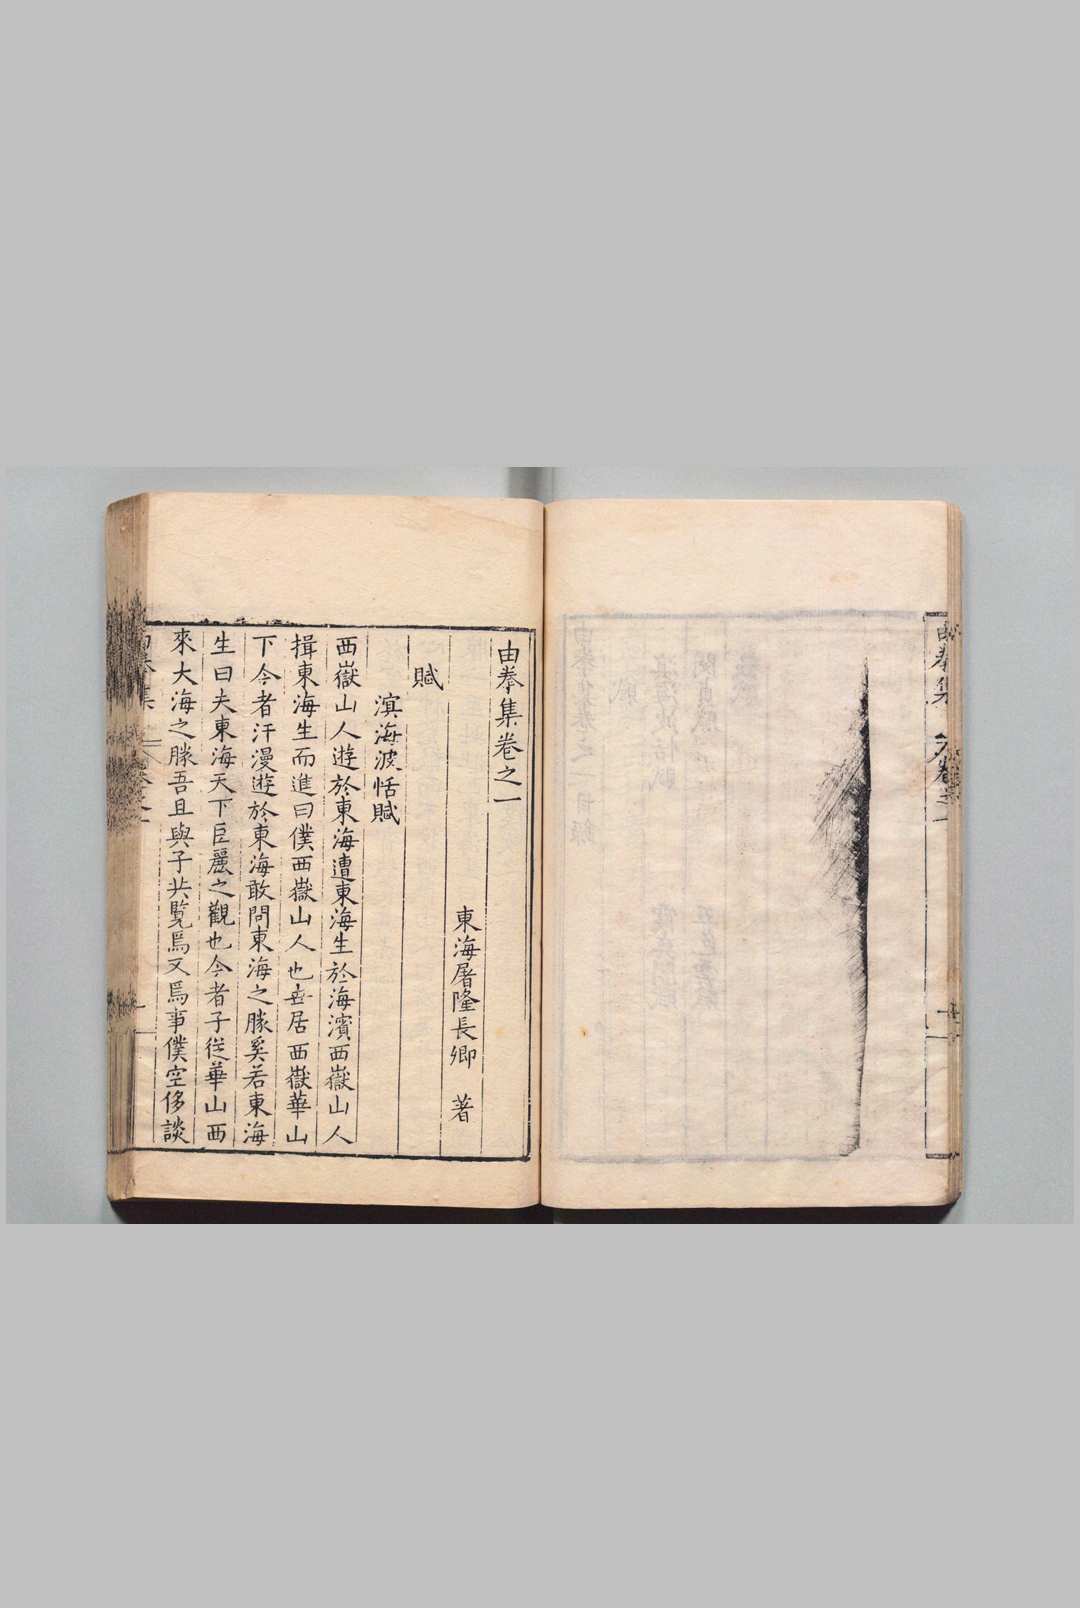 由拳集
卷之一
由拳集卷之一
東海屠隆長卿　著
賦
溟海波恬賦
西嶽山人遊於東海遭東海生於海濱西嶽山人
揖東海生而進曰僕西嶽山人也世居西嶽華山
下今者汗漫遊於東海敢問東海之勝奚若東海
生曰夫東海天下巨麗之觀也今者子從華山西
來大海之勝吾且與子共覽焉又焉事僕空侈談